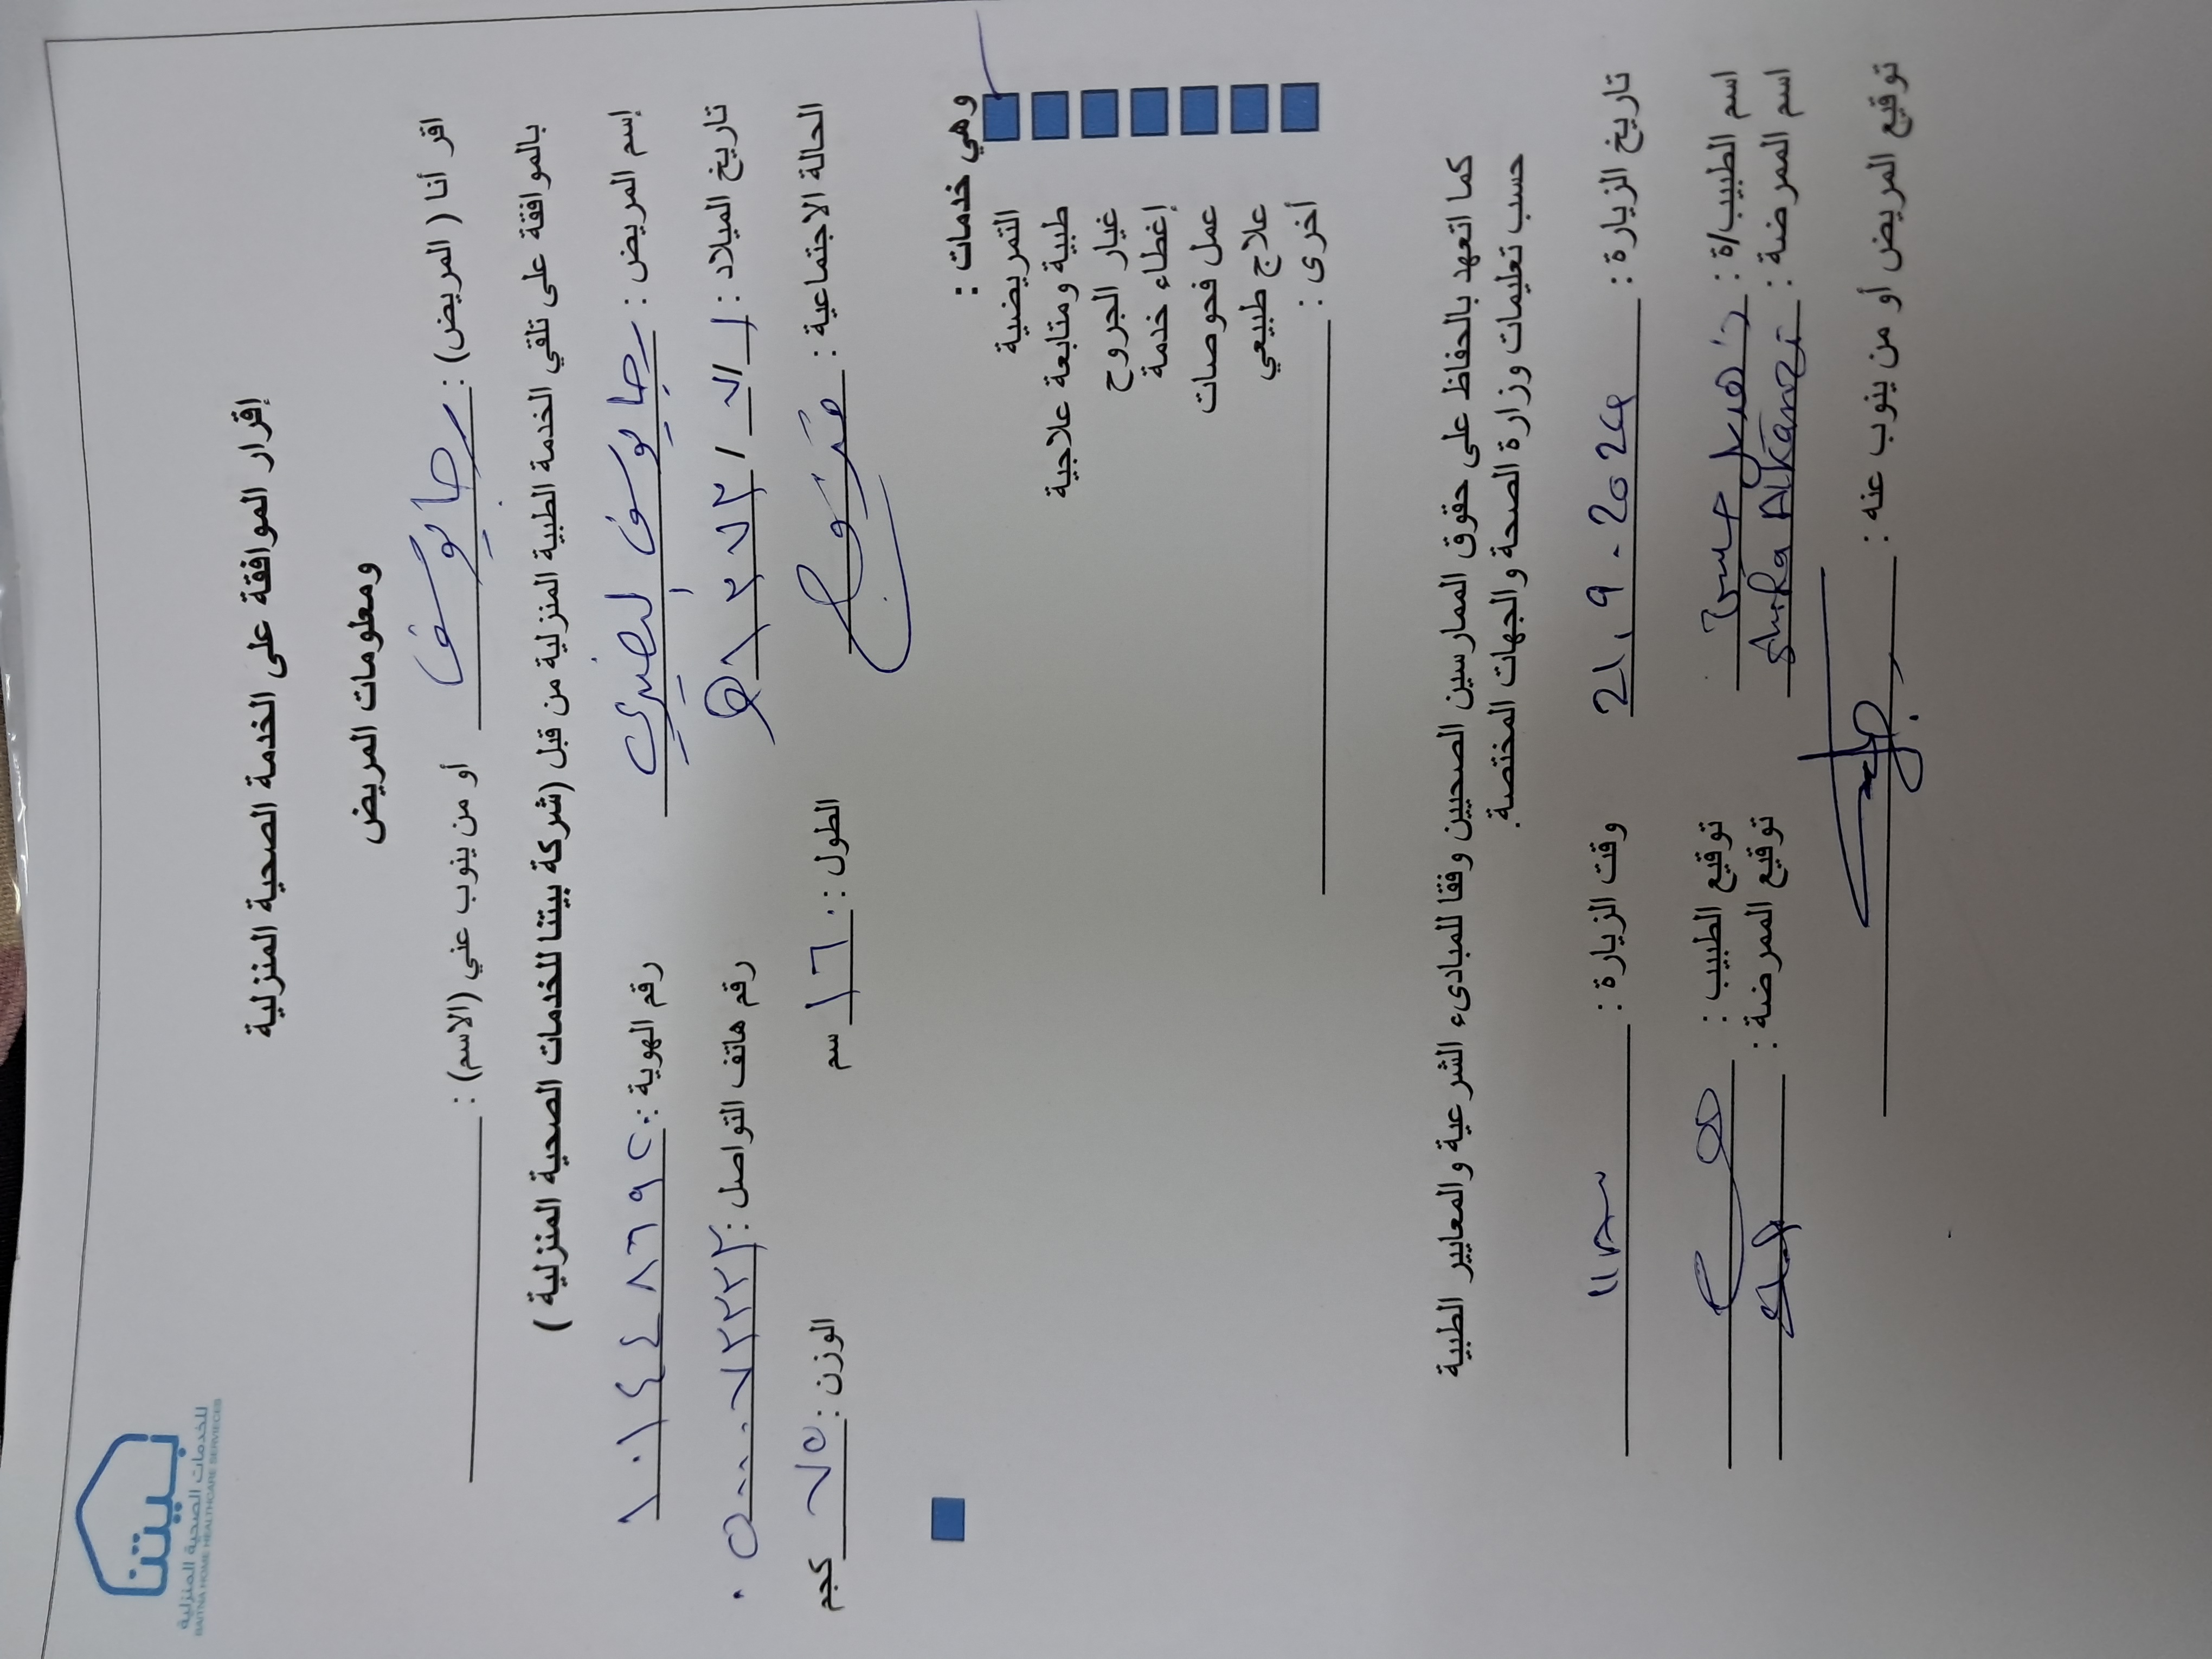 بيتنا
للخدمات الصحية المنزلية
BAITNA HOME HEALTHCARE SERVIECES
إقرار الموافقة على الخدمة الصحية المنزلية
ومعلومات المريض
اقر أنا ( المريض) : رجا يوسف أو من ينوب عني (الاسم) :
بالموافقة على تلقي الخدمة الطبية المنزلية من قبل (شركة بيتنا للخدمات الصحية المنزلية )
إسم المريض : رجا يوسف رقم الهوية : ١٠١٤٤٨٦٩٢
تاريخ الميلاد : ١ / ٧ / رقم هاتف التواصل :
الحالة الاجتماعية : متزوج الطول : ١٦٠ سم الوزن : ٧٥ كجم
وهي خدمات :
التمريضية
طبية ومتابعة علاجية
غيار الجروح
إغطاء خدمة
عمل فحوصات
علاج طبيعي
أخرى :
كما اتعهد بالحفاظ على حقوق الممارسين الصحيين وفقا للمبادىء الشرعية والمعايير الطبية
حسب تعليمات وزارة الصحة والجهات المختصة.
تاريخ الزيارة : 21.9.2024 وقت الزيارة :
اسم الطبيب/ة : توقيع الطبيب :
اسم الممرضة : توقيع الممرضة :
توقيع المريض أو من ينوب عنه :